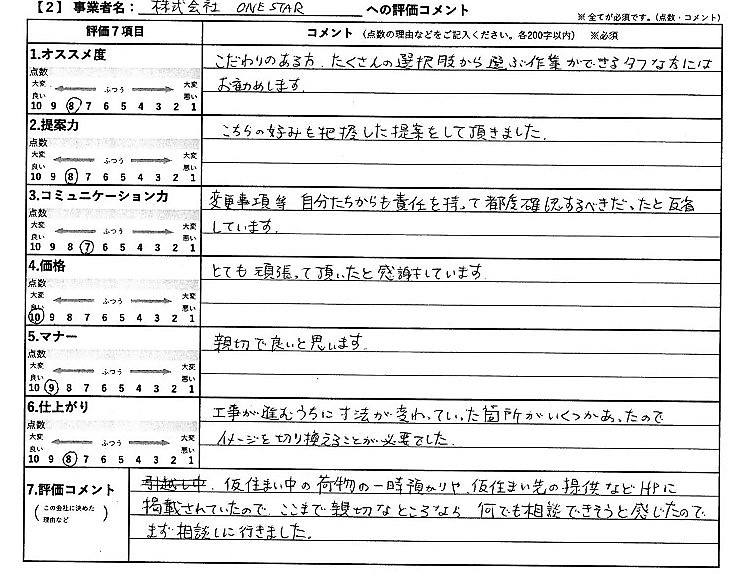 【2】 事業者名： 株式会社 ONE STAR への評価コメント
※全てが必須です。（点数・コメント）
評価7項目 コメント （点数の理由などをご記入ください。各200字以内） ※必須
1.オススメ度
点数
大変良い ふつう 大変悪い
10 9 8 7 6 5 4 3 2 1
こだわりのある方、たくさんの選択肢から選ぶ作業ができるタフな方には
お勧めします。
2.提案力
点数
大変良い ふつう 大変悪い
10 9 8 7 6 5 4 3 2 1
こちらの好みを把握した提案をして頂きました。
3.コミュニケーション力
点数
大変良い ふつう 大変悪い
10 9 8 7 6 5 4 3 2 1
変更事項等 自分たちからも責任を持って都度確認するべきだったと反省
しています。
4.価格
点数
大変良い ふつう 大変悪い
10 9 8 7 6 5 4 3 2 1
とても頑張って頂いたと感謝しています。
5.マナー
点数
大変良い ふつう 大変悪い
10 9 8 7 6 5 4 3 2 1
親切で良いと思います。
6.仕上がり
点数
大変良い ふつう 大変悪い
10 9 8 7 6 5 4 3 2 1
工事が進むうちに寸法が変わっていった箇所がいくつかあったので
イメージを切り換えることが必要でした。
7.評価コメント
（この会社に決めた理由など）
引越し中、仮住まい中の荷物の一時預かりや、仮住まい先の提供などHPに
掲載されていたので、ここまで親切なところなら 何でも相談できそうと感じたので
まず相談しに行きました。